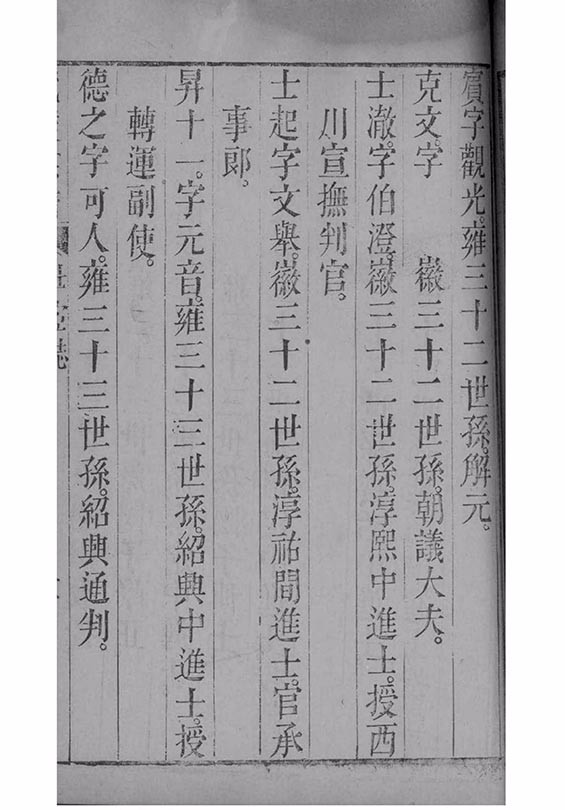 賔字觀光。雍三十二世孫。解元。
克文。字　　　徽三十二世孫。朝議大夫。
士澈。字伯澄。徽三十二世孫。淳熙中進士。授西
川宣撫判官。
士起字文舉。徽三十二世孫。淳祐間進士。官承
事郎。
昇十一。字元音。雍三十三世孫。紹興中進士。授
轉運副使。
德之字可人。雍三十三世孫。紹興通判。